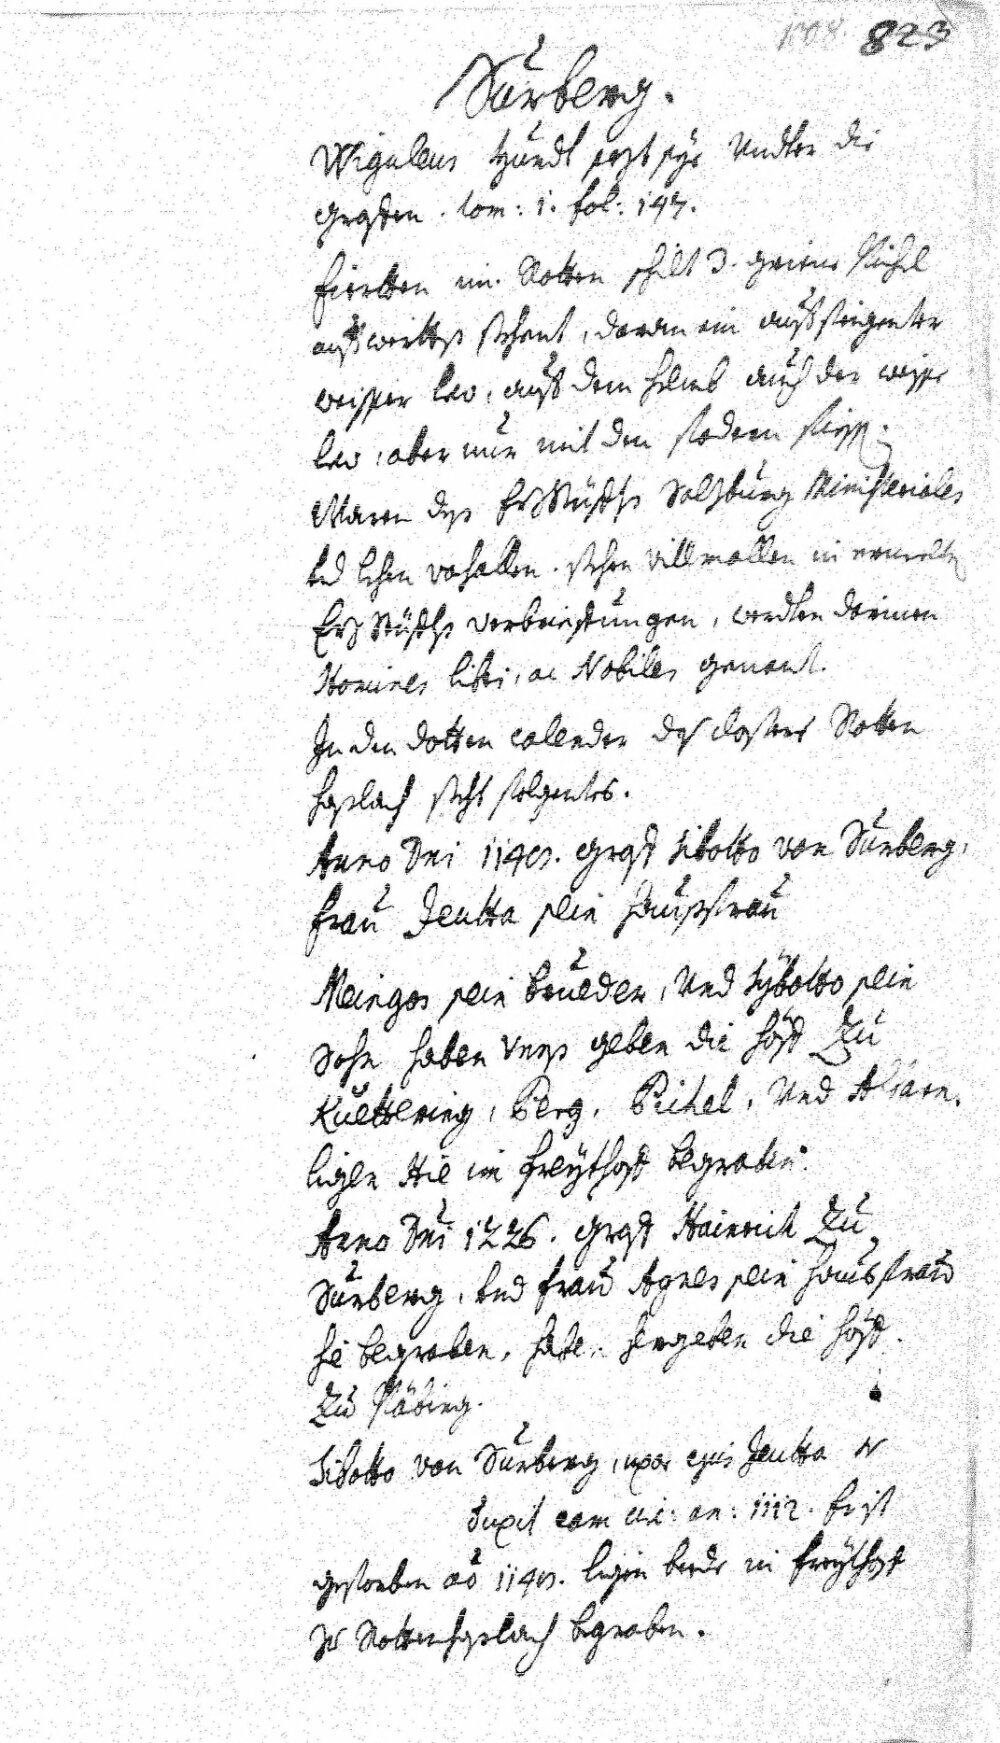 823
Surberg.
Wiguleus Hundt sezt sye Undter die
Grafen. tom: 1. fol: 147.
Fierten im Rotten schilt 3. griene Pichel
aufwerths stehent, daran ein aufsteigenter
weisser Leo, auf dem Helmb auch der weisse
Leo, aber nur mit den fodern fiess.
Waren dess Erzstüffts Salzburg Ministeriales
und Lehen vasallen. stehen villmallen in ermelten
Erzstüffts verbrieffungen, werdten darinen
Homines liberi, ac Nobiles genant.
In den Dotten calender dess closters Rotten
haslach steht folgentes.
Anno Dni 1140. Graf Sibotto von Surberg,
Frau Jeutta sein hausfrau
Meingos sein Brueder, Und Sybotto sein
Sohn haben Unss geben die Höff Zu
Berg, Pichel, Und
ligen Hie im Freythoff begraben.
Anno Dni 1226. Graf Hainrich Zu
Surberg, und frau Agnes sein hausfrau
hie begraben, habe hergeben die Höff
Zu
Sibotto von Surberg, uxor ejus Jeutta er
Duxit eam an: 1112. Er ist
gestorben ao 1140. ligen bede in Freythoff
Zu Rottenhaslach begraben.